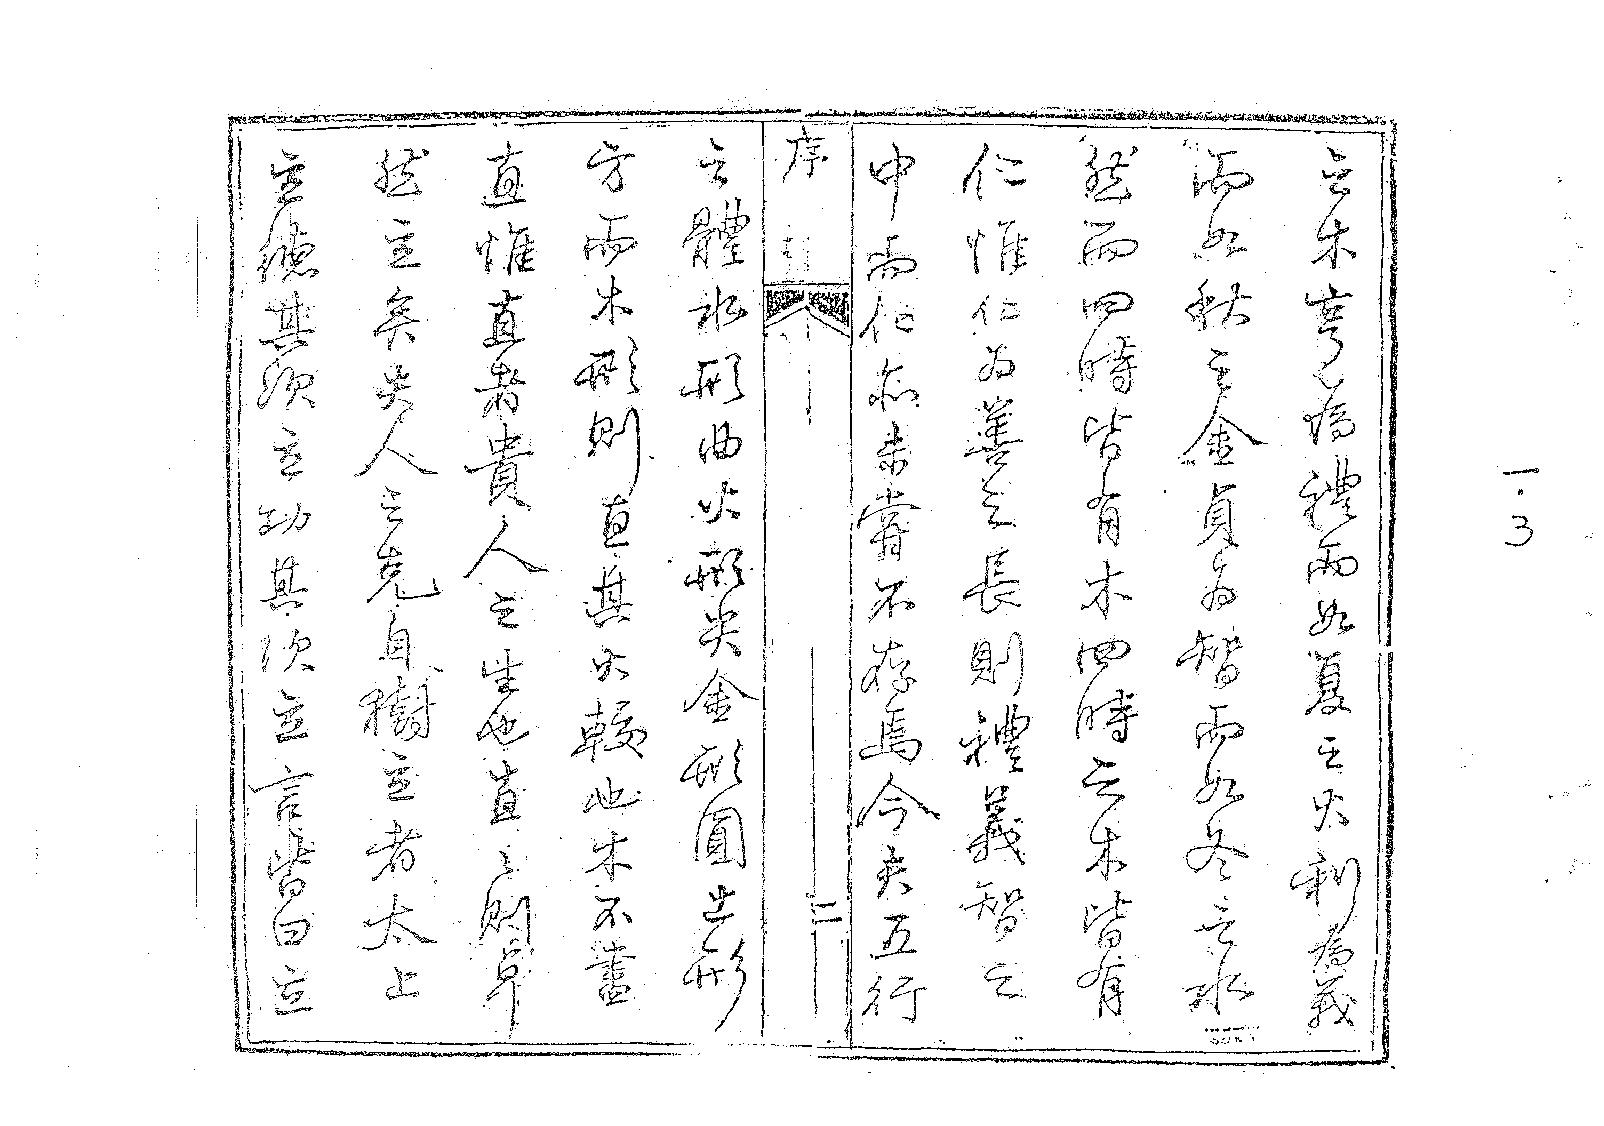 之木亨為禮而如夏之火利為義
而如秋之金貞為智而如冬之水
然而四時皆有木四時之木皆有
仁惟仁為善之長則禮義智之
中而仁亦未嘗不存焉今夫五行
序
二
之體水形曲火形尖金形圓土形
方而木形則直其大較也木不盡
直惟直者貴人之生也直〻則卓
然立矣夫人之克自樹立者太上
立德其次立功其次立言皆曰立
一.3